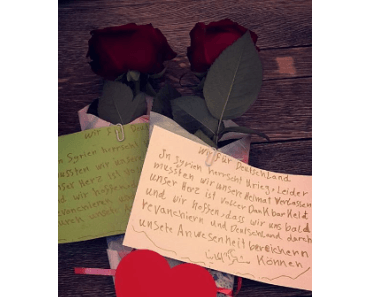 Wir für Deutschland
In Syrien herrscht Krieg + Leider
mussten wir unsere Heimat Verlassen
unser Herz ist Voller Dankbarkeit
und wir Hoffen, dass wir uns bald
revanchieren und Deutschland durch
unsete Anwesenheit bereichern
Können
Wir
In Syrien herrscht
mussten wir unsere
unser Herz ist Vol
und wir hoffen
revanchieren un
durch unser